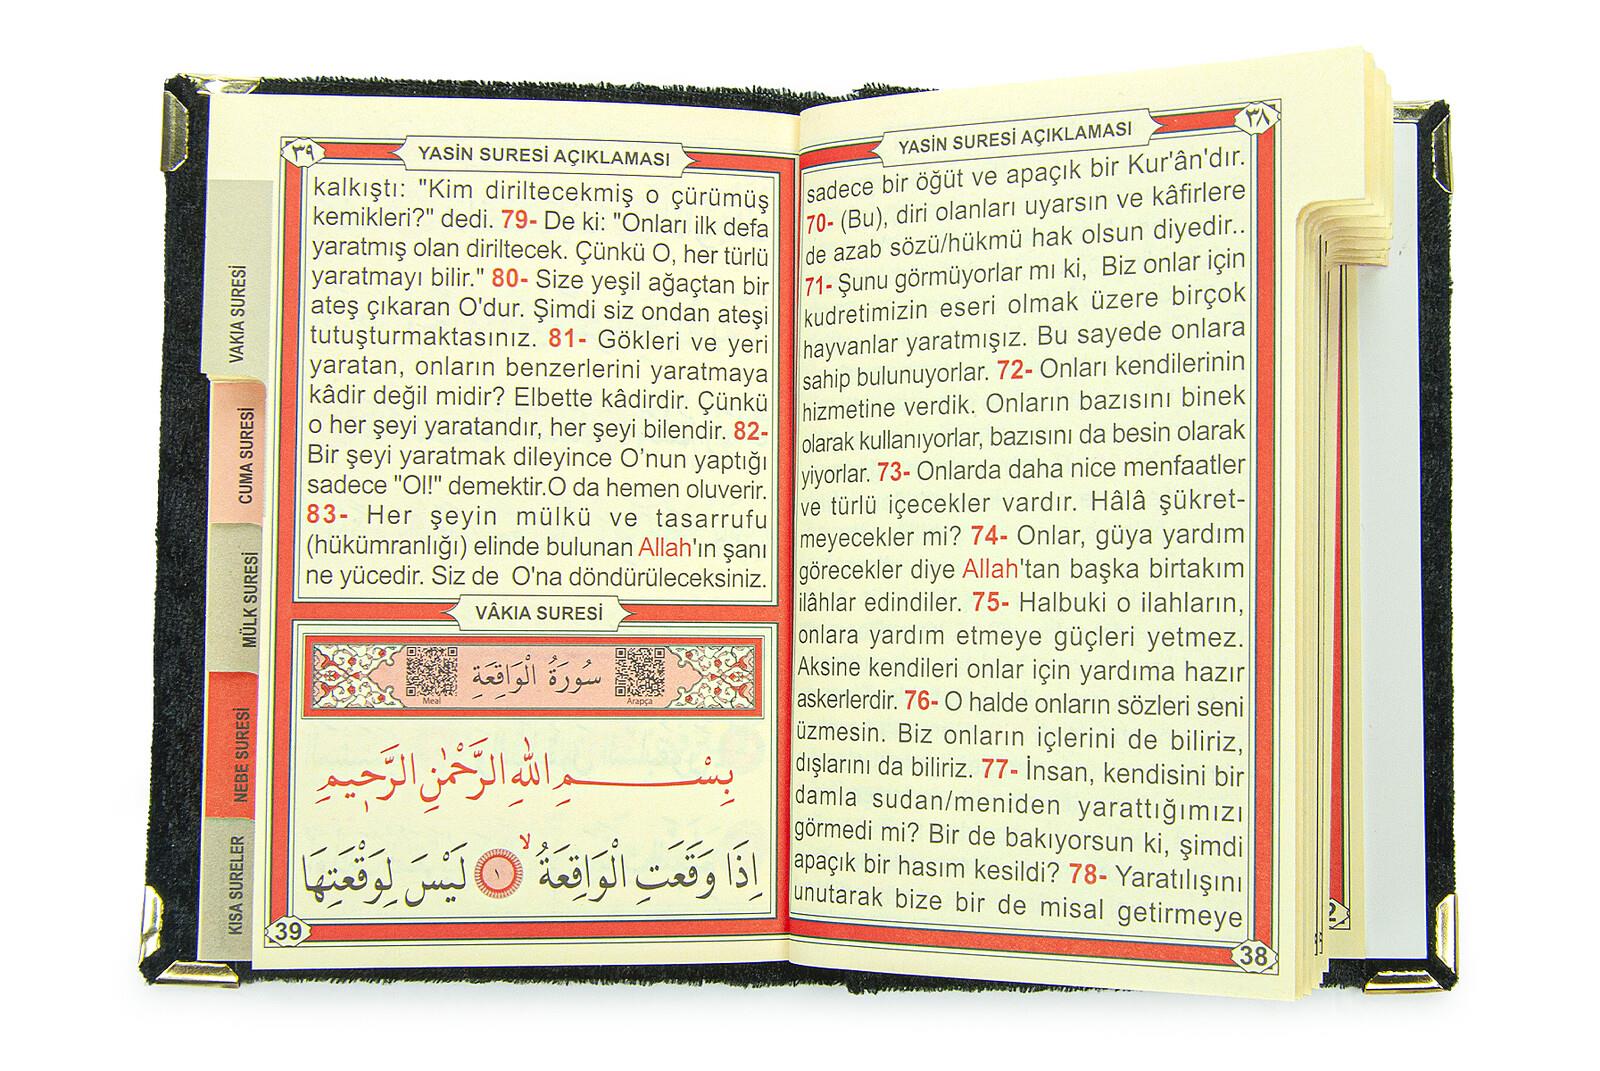 ٣٨
YASİN SURESİ AÇIKLAMASI
sadece bir öğüt ve apaçık bir Kur'ân'dır.
70- (Bu), diri olanları uyarsın ve kâfirlere
de azab sözü/hükmü hak olsun diyedir..
71- Şunu görmüyorlar mı ki, Biz onlar için
kudretimizin eseri olmak üzere birçok
hayvanlar yaratmışız. Bu sayede onlara
sahip bulunuyorlar. 72- Onları kendilerinin
hizmetine verdik. Onların bazısını binek
olarak kullanıyorlar, bazısını da besin olarak
yiyorlar. 73- Onlarda daha nice menfaatler
ve türlü içecekler vardır. Hâlâ şükret-
meyecekler mi? 74- Onlar, güya yardım
görecekler diye Allah'tan başka birtakım
ilâhlar edindiler. 75- Halbuki o ilahların,
onlara yardım etmeye güçleri yetmez.
Aksine kendileri onlar için yardıma hazır
askerlerdir. 76- O halde onların sözleri seni
üzmesin. Biz onların içlerini de biliriz,
dışlarını da biliriz. 77- İnsan, kendisini bir
damla sudan/meniden yarattığımızı
görmedi mi? Bir de bakıyorsun ki, şimdi
apaçık bir hasım kesildi? 78- Yaratılışını
unutarak bize bir de misal getirmeye
38
٣٩
YASİN SURESİ AÇIKLAMASI
kalkıştı: "Kim diriltecekmiş o çürümüş
kemikleri?" dedi. 79- De ki: "Onları ilk defa
yaratmış olan diriltecek. Çünkü O, her türlü
yaratmayı bilir." 80- Size yeşil ağaçtan bir
ateş çıkaran O'dur. Şimdi siz ondan ateşi
tutuşturmaktasınız. 81- Gökleri ve yeri
yaratan, onların benzerlerini yaratmaya
kâdir değil midir? Elbette kâdirdir. Çünkü
o her şeyi yaratandır, her şeyi bilendir. 82-
Bir şeyi yaratmak dileyince O’nun yaptığı
sadece "Ol!" demektir.O da hemen oluverir.
83- Her şeyin mülkü ve tasarrufu
(hükümranlığı) elinde bulunan Allah'ın şanı
ne yücedir. Siz de O'na döndürüleceksiniz.
VÂKIA SURESİ
سُورَةُ الْوَاقِعَةِ
Meal
Arapça
بِسْمِ اللّٰهِ الرَّحْمٰنِ الرَّحِيمِ
اِذَا وَقَعَتِ الْوَاقِعَةُ ۙ ١ لَيْسَ لِوَقْعَتِهَا
39
VAKIA SURESİ
CUMA SURESİ
MÜLK SURESİ
NEBE SURESİ
KISA SURELER